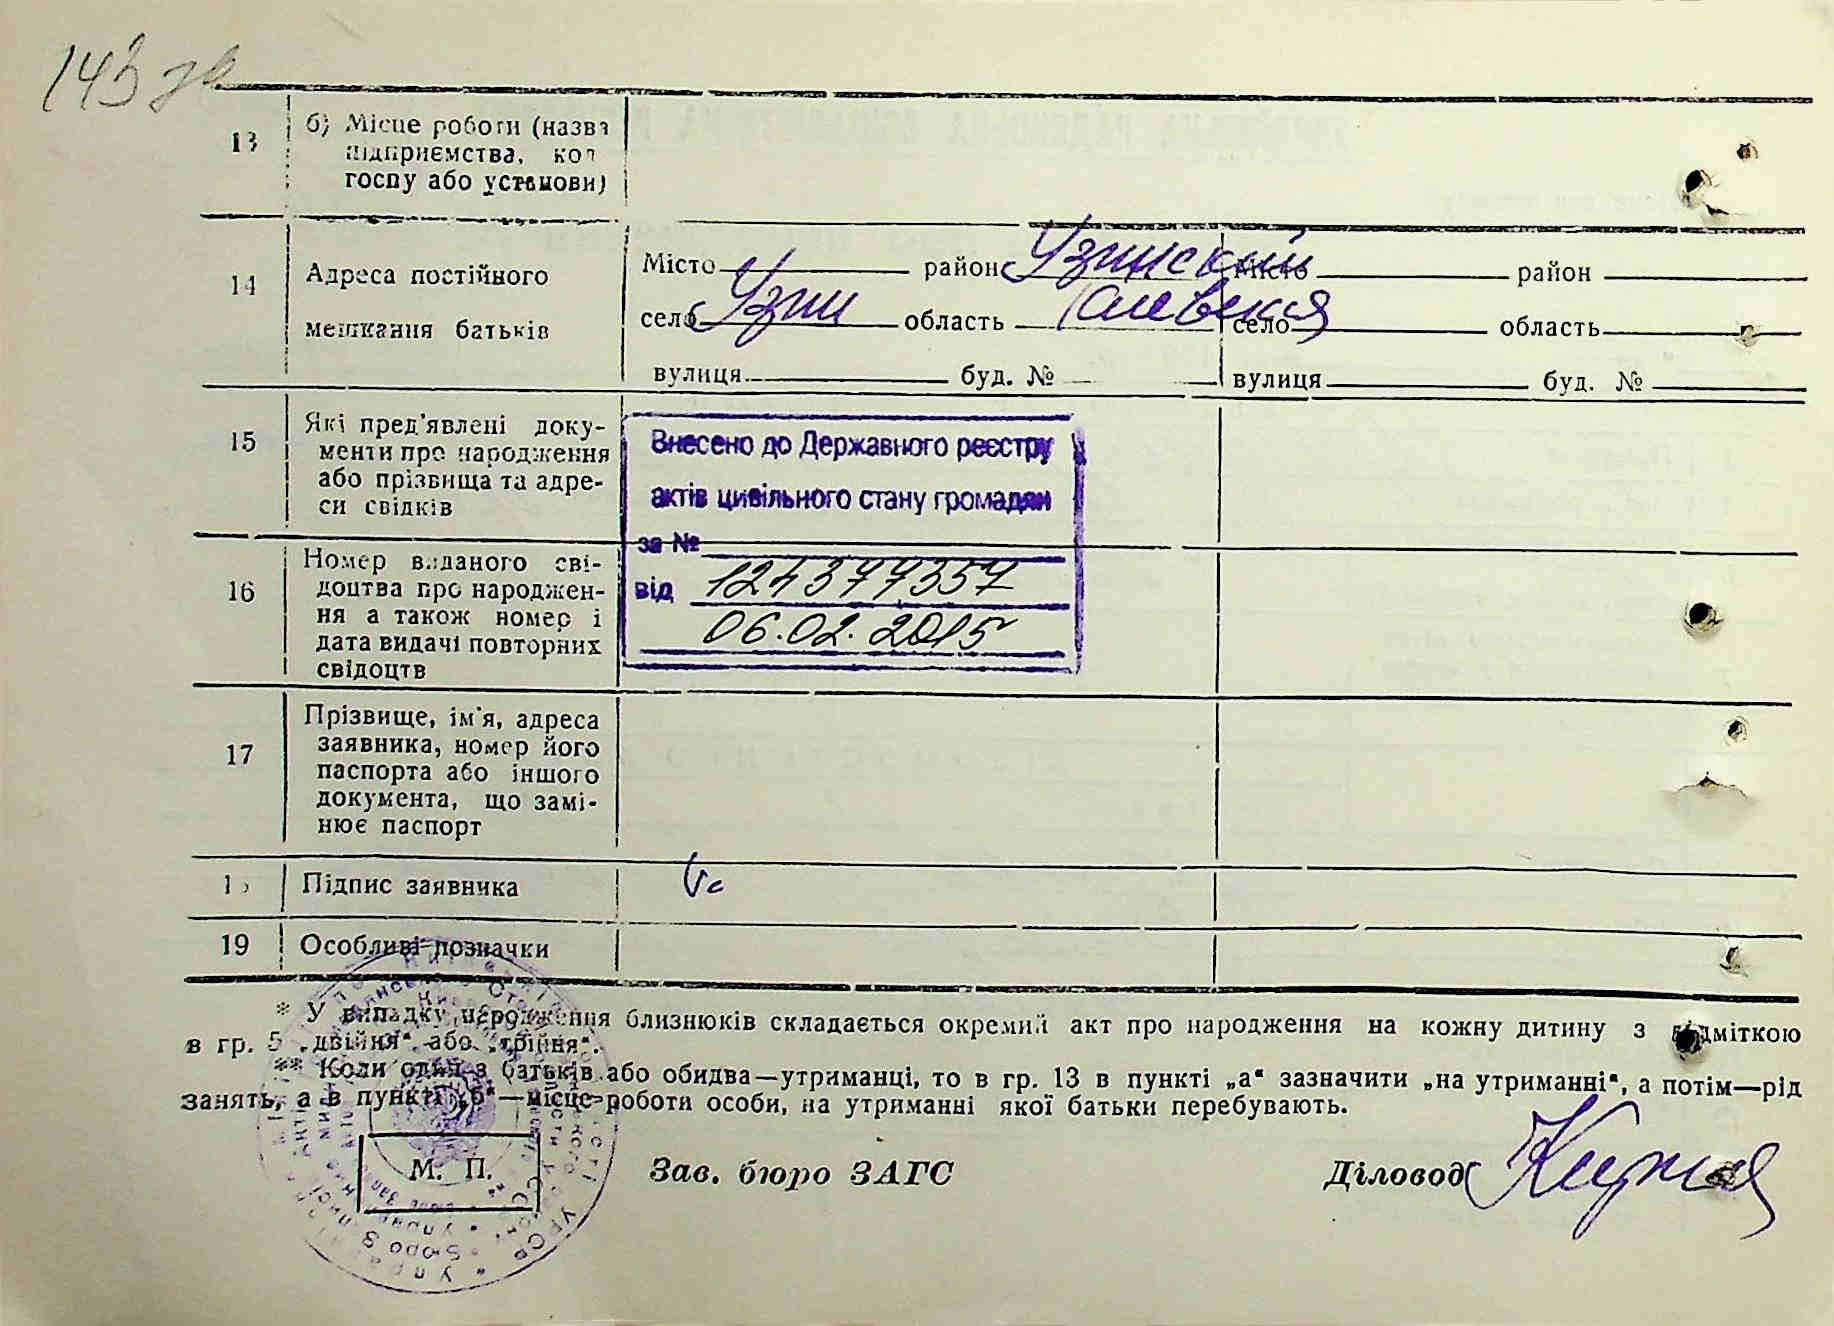 143
13 б) Місце роботи (назва
підприємства, кол
госпу або установи)
14 Адреса постійного
мешкання батьків
Місто район Узинский Місто район
село Узин область Киевская село область
вулиця буд. № вулиця буд. №
15 Які пред'явлені доку-
менти про народження
або прізвища та адре-
си свідків
Внесено до Державного реєстру
актів цивільного стану громадян
за №
від 124377357
06.02.2015
16 Номер виданого сві-
доцтва про народжен-
ня а також номер і
дата видачі повторних
свідоцтв
17 Прізвище, ім'я, адреса
заявника, номер його
паспорта або іншого
документа, що замі-
нює паспорт
Підпис заявника
19 Особливі позначки
* У випадку народження близнюків складається окремий акт про народження на кожну дитину з відміткою
в гр. 5 „двійня“ або „трійня“.
** Коли один з батьків або обидва—утриманці, то в гр. 13 в пункті „а“ зазначити „на утриманні“, а потім—рід
занять, а в пункті „б“—місце роботи особи, на утриманні якої батьки перебувають.
М. П. Зав. бюро ЗАГС Діловод